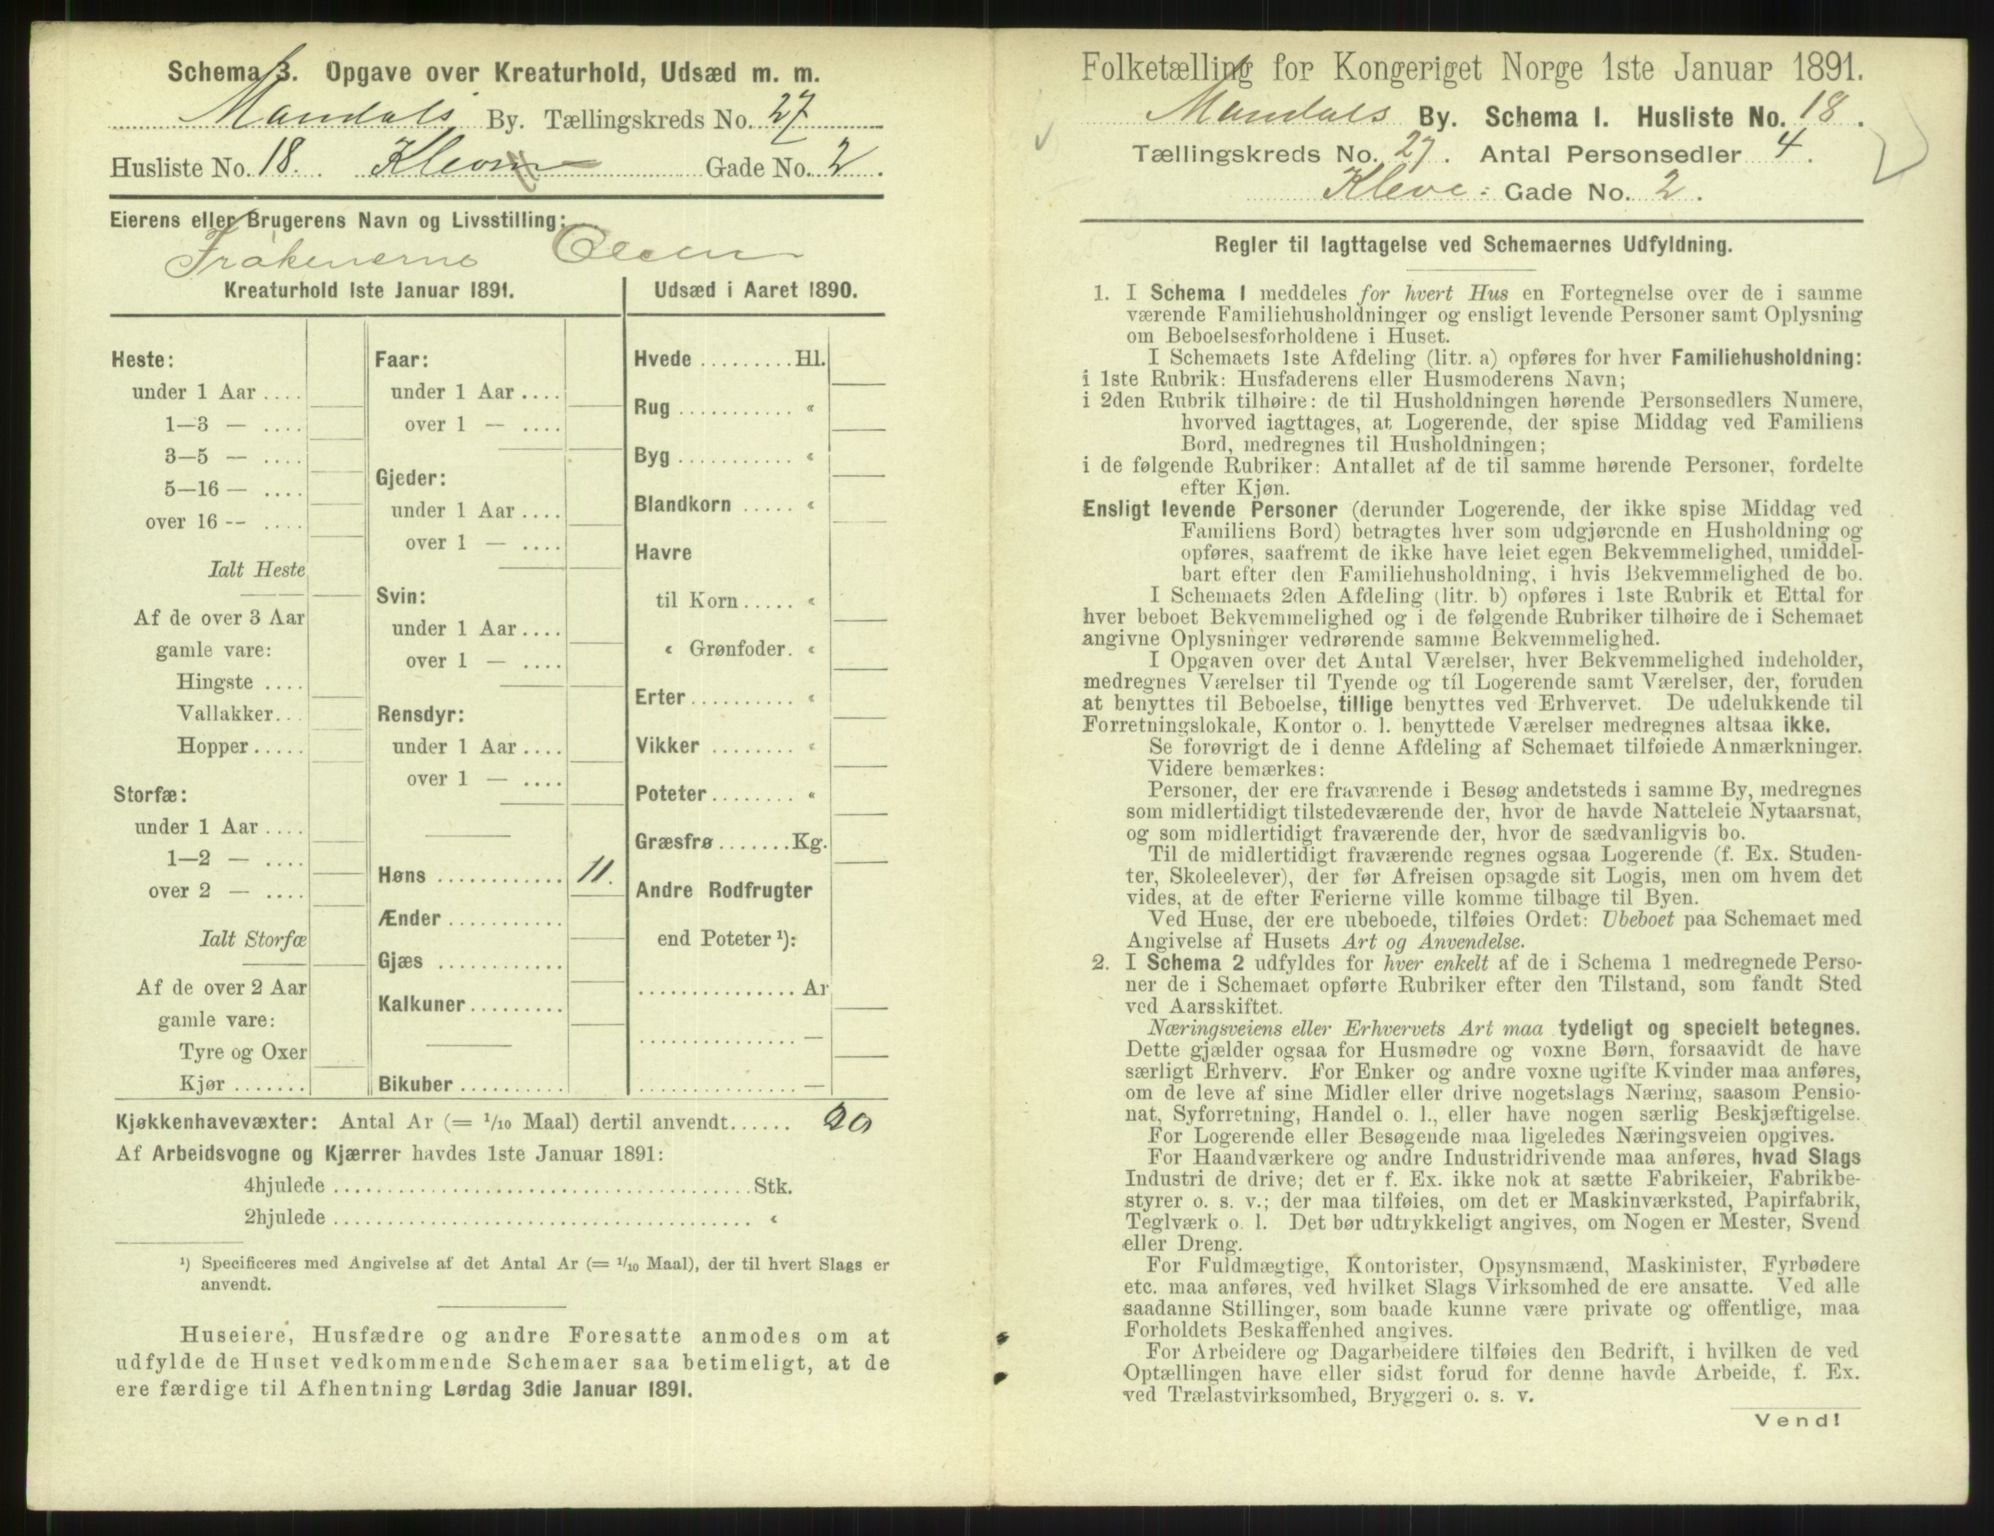 Schema 3. Opgave over Kreaturhold, Udsæd m. m.
Mandals By. Tællingskreds No. 27
Husliste No. 18. Gade No. 2.
Eierens eller Brugerens Navn og Livsstilling:
Frøkenerne Olsen
Kreaturhold 1ste Januar 1891.
Heste:
under 1 Aar ....
1—3 — ....
3—5 — ....
5—16 — ....
over 16 -- ....
Ialt Heste
Af de over 3 Aar
gamle vare:
Hingste ....
Vallakker...
Hopper.....
Storfæ:
under 1 Aar ....
1—2 — ....
over 2 — ....
Ialt Storfæ
Af de over 2 Aar
gamle vare:
Tyre og Oxer
Kjør .......
Faar:
under 1 Aar ....
over 1 — ....
Gjeder:
under 1 Aar ....
over 1 — ....
Svin:
under 1 Aar ....
over 1 — ....
Rensdyr:
under 1 Aar ....
over 1 — ....
Høns ............ 11.
Ænder ...........
Gjæs ............
Kalkuner.........
Bikuber ..........
Udsæd i Aaret 1890.
Hvede .........Hl.
Rug ........... «
Byg ........... «
Blandkorn ..... «
Havre
til Korn..... «
« Grønfoder. «
Erter .......... «
Vikker ........ «
Poteter ........ «
Græsfrø .......Kg.
Andre Rodfrugter
end Poteter ¹):
............... Ar
............... —
............... —
Kjøkkenhavevæxter: Antal Ar (= 1/10 Maal) dertil anvendt...... 20
Af Arbeidsvogne og Kjærrer havdes 1ste Januar 1891:
4hjulede ........................................Stk.
2hjulede ........................................ «
¹) Specificeres med Angivelse af det Antal Ar (= 1/10 Maal), der til hvert Slags er
anvendt.
Huseiere, Husfædre og andre Foresatte anmodes om at
udfylde de Huset vedkommende Schemaer saa betimeligt, at de
ere færdige til Afhentning Lørdag 3die Januar 1891.
Folketælling for Kongeriget Norge 1ste Januar 1891.
Mandals By. Schema I. Husliste No. 18.
Tællingskreds No. 27. Antal Personsedler 4.
Kleve- Gade No. 2.
Regler til Iagttagelse ved Schemaernes Udfyldning.
1. I Schema 1 meddeles for hvert Hus en Fortegnelse over de i samme
værende Familiehusholdninger og ensligt levende Personer samt Oplysning
om Beboelsesforholdene i Huset.
I Schemaets 1ste Afdeling (litr. a) opføres for hver Familiehusholdning:
i 1ste Rubrik: Husfaderens eller Husmoderens Navn;
i 2den Rubrik tilhøire: de til Husholdningen hørende Personsedlers Numere,
hvorved iagttages, at Logerende, der spise Middag ved Familiens
Bord, medregnes til Husholdningen;
i de følgende Rubriker: Antallet af de til samme hørende Personer, fordelte
efter Kjøn.
Ensligt levende Personer (derunder Logerende, der ikke spise Middag ved
Familiens Bord) betragtes hver som udgjørende en Husholdning og
opføres, saafremt de ikke have leiet egen Bekvemmelighed, umiddel-
bart efter den Familiehusholdning, i hvis Bekvemmelighed de bo.
I Schemaets 2den Afdeling (litr. b) opføres i 1ste Rubrik et Ettal for
hver beboet Bekvemmelighed og i de følgende Rubriker tilhøire de i Schemaet
angivne Oplysninger vedrørende samme Bekvemmelighed.
I Opgaven over det Antal Værelser, hver Bekvemmelighed indeholder,
medregnes Værelser til Tyende og til Logerende samt Værelser, der, foruden
at benyttes til Beboelse, tillige benyttes ved Erhvervet. De udelukkende til
Forretningslokale, Kontor o. l. benyttede Værelser medregnes altsaa ikke.
Se forøvrigt de i denne Afdeling af Schemaet tilføiede Anmærkninger.
Videre bemærkes:
Personer, der ere fraværende i Besøg andetsteds i samme By, medregnes
som midlertidigt tilstedeværende der, hvor de havde Natteleie Nytaarsnat,
og som midlertidigt fraværende der, hvor de sædvanligvis bo.
Til de midlertidigt fraværende regnes ogsaa Logerende (f. Ex. Studen-
ter, Skoleelever), der før Afreisen opsagde sit Logis, men om hvem det
vides, at de efter Ferierne ville komme tilbage til Byen.
Ved Huse, der ere ubeboede, tilføies Ordet: Ubeboet paa Schemaet med
Angivelse af Husets Art og Anvendelse.
2. I Schema 2 udfyldes for hver enkelt af de i Schema 1 medregnede Perso-
ner de i Schemaet opførte Rubriker efter den Tilstand, som fandt Sted
ved Aarsskiftet.
Næringsveiens eller Erhvervets Art maa tydeligt og specielt betegnes.
Dette gjælder ogsaa for Husmødre og voxne Børn, forsaavidt de have
særligt Erhverv. For Enker og andre voxne ugifte Kvinder maa anføres,
om de leve af sine Midler eller drive nogetslags Næring, saasom Pensio-
nat, Syforretning, Handel o. l., eller have nogen særlig Beskjæftigelse.
For Logerende eller Besøgende maa ligeledes Næringsveien opgives.
For Haandværkere og andre Industridrivende maa anføres, hvad Slags
Industri de drive; det er f. Ex. ikke nok at sætte Fabrikeier, Fabrikbe-
styrer o. s. v.; der maa tilføies, om det er Maskinværksted, Papirfabrik,
Teglværk o. l. Det bør udtrykkeligt angives, om Nogen er Mester, Svend
eller Dreng.
For Fuldmægtige, Kontorister, Opsynsmænd, Maskinister, Fyrbødere
etc. maa anføres, ved hvilket Slags Virksomhed de ere ansatte. Ved alle
saadanne Stillinger, som baade kunne være private og offentlige, maa
Forholdets Beskaffenhed angives.
For Arbeidere og Dagarbeidere tilføies den Bedrift, i hvilken de ved
Optællingen have eller sidst forud for denne havde Arbeide, f. Ex.
ved Trælastvirksomhed, Bryggeri o. s. v.
Vend!